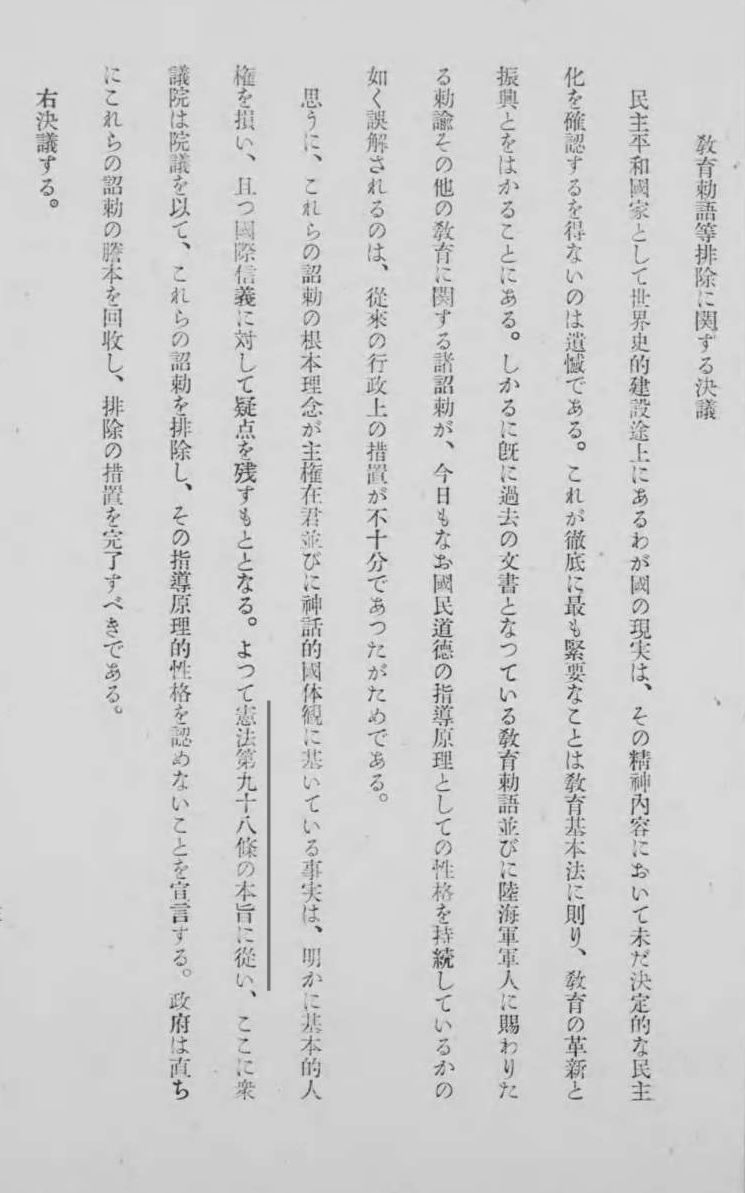 教育勅語等排除に関する決議
民主平和國家として世界史的建設途上にあるわが國の現実は、その精神内容において未だ決定的な民主
化を確認するを得ないのは遺憾である。これが徹底に最も緊要なことは教育基本法に則り、教育の革新と
振興とをはかることにある。しかるに既に過去の文書となつている教育勅語並びに陸海軍軍人に賜わりた
る勅諭その他の教育に関する諸詔勅が、今日もなお國民道徳の指導原理としての性格を持続しているかの
如く誤解されるのは、従來の行政上の措置が不十分であつたがためである。
思うに、これらの詔勅の根本理念が主権在君並びに神話的國体観に基いている事実は、明かに基本的人
権を損い、且つ國際信義に対して疑点を残すもととなる。よつて憲法第九十八條の本旨に従い、ここに衆
議院は院議を以て、これらの詔勅を排除し、その指導原理的性格を認めないことを宣言する。政府は直ち
にこれらの詔勅の謄本を回收し、排除の措置を完了すべきである。
右決議する。